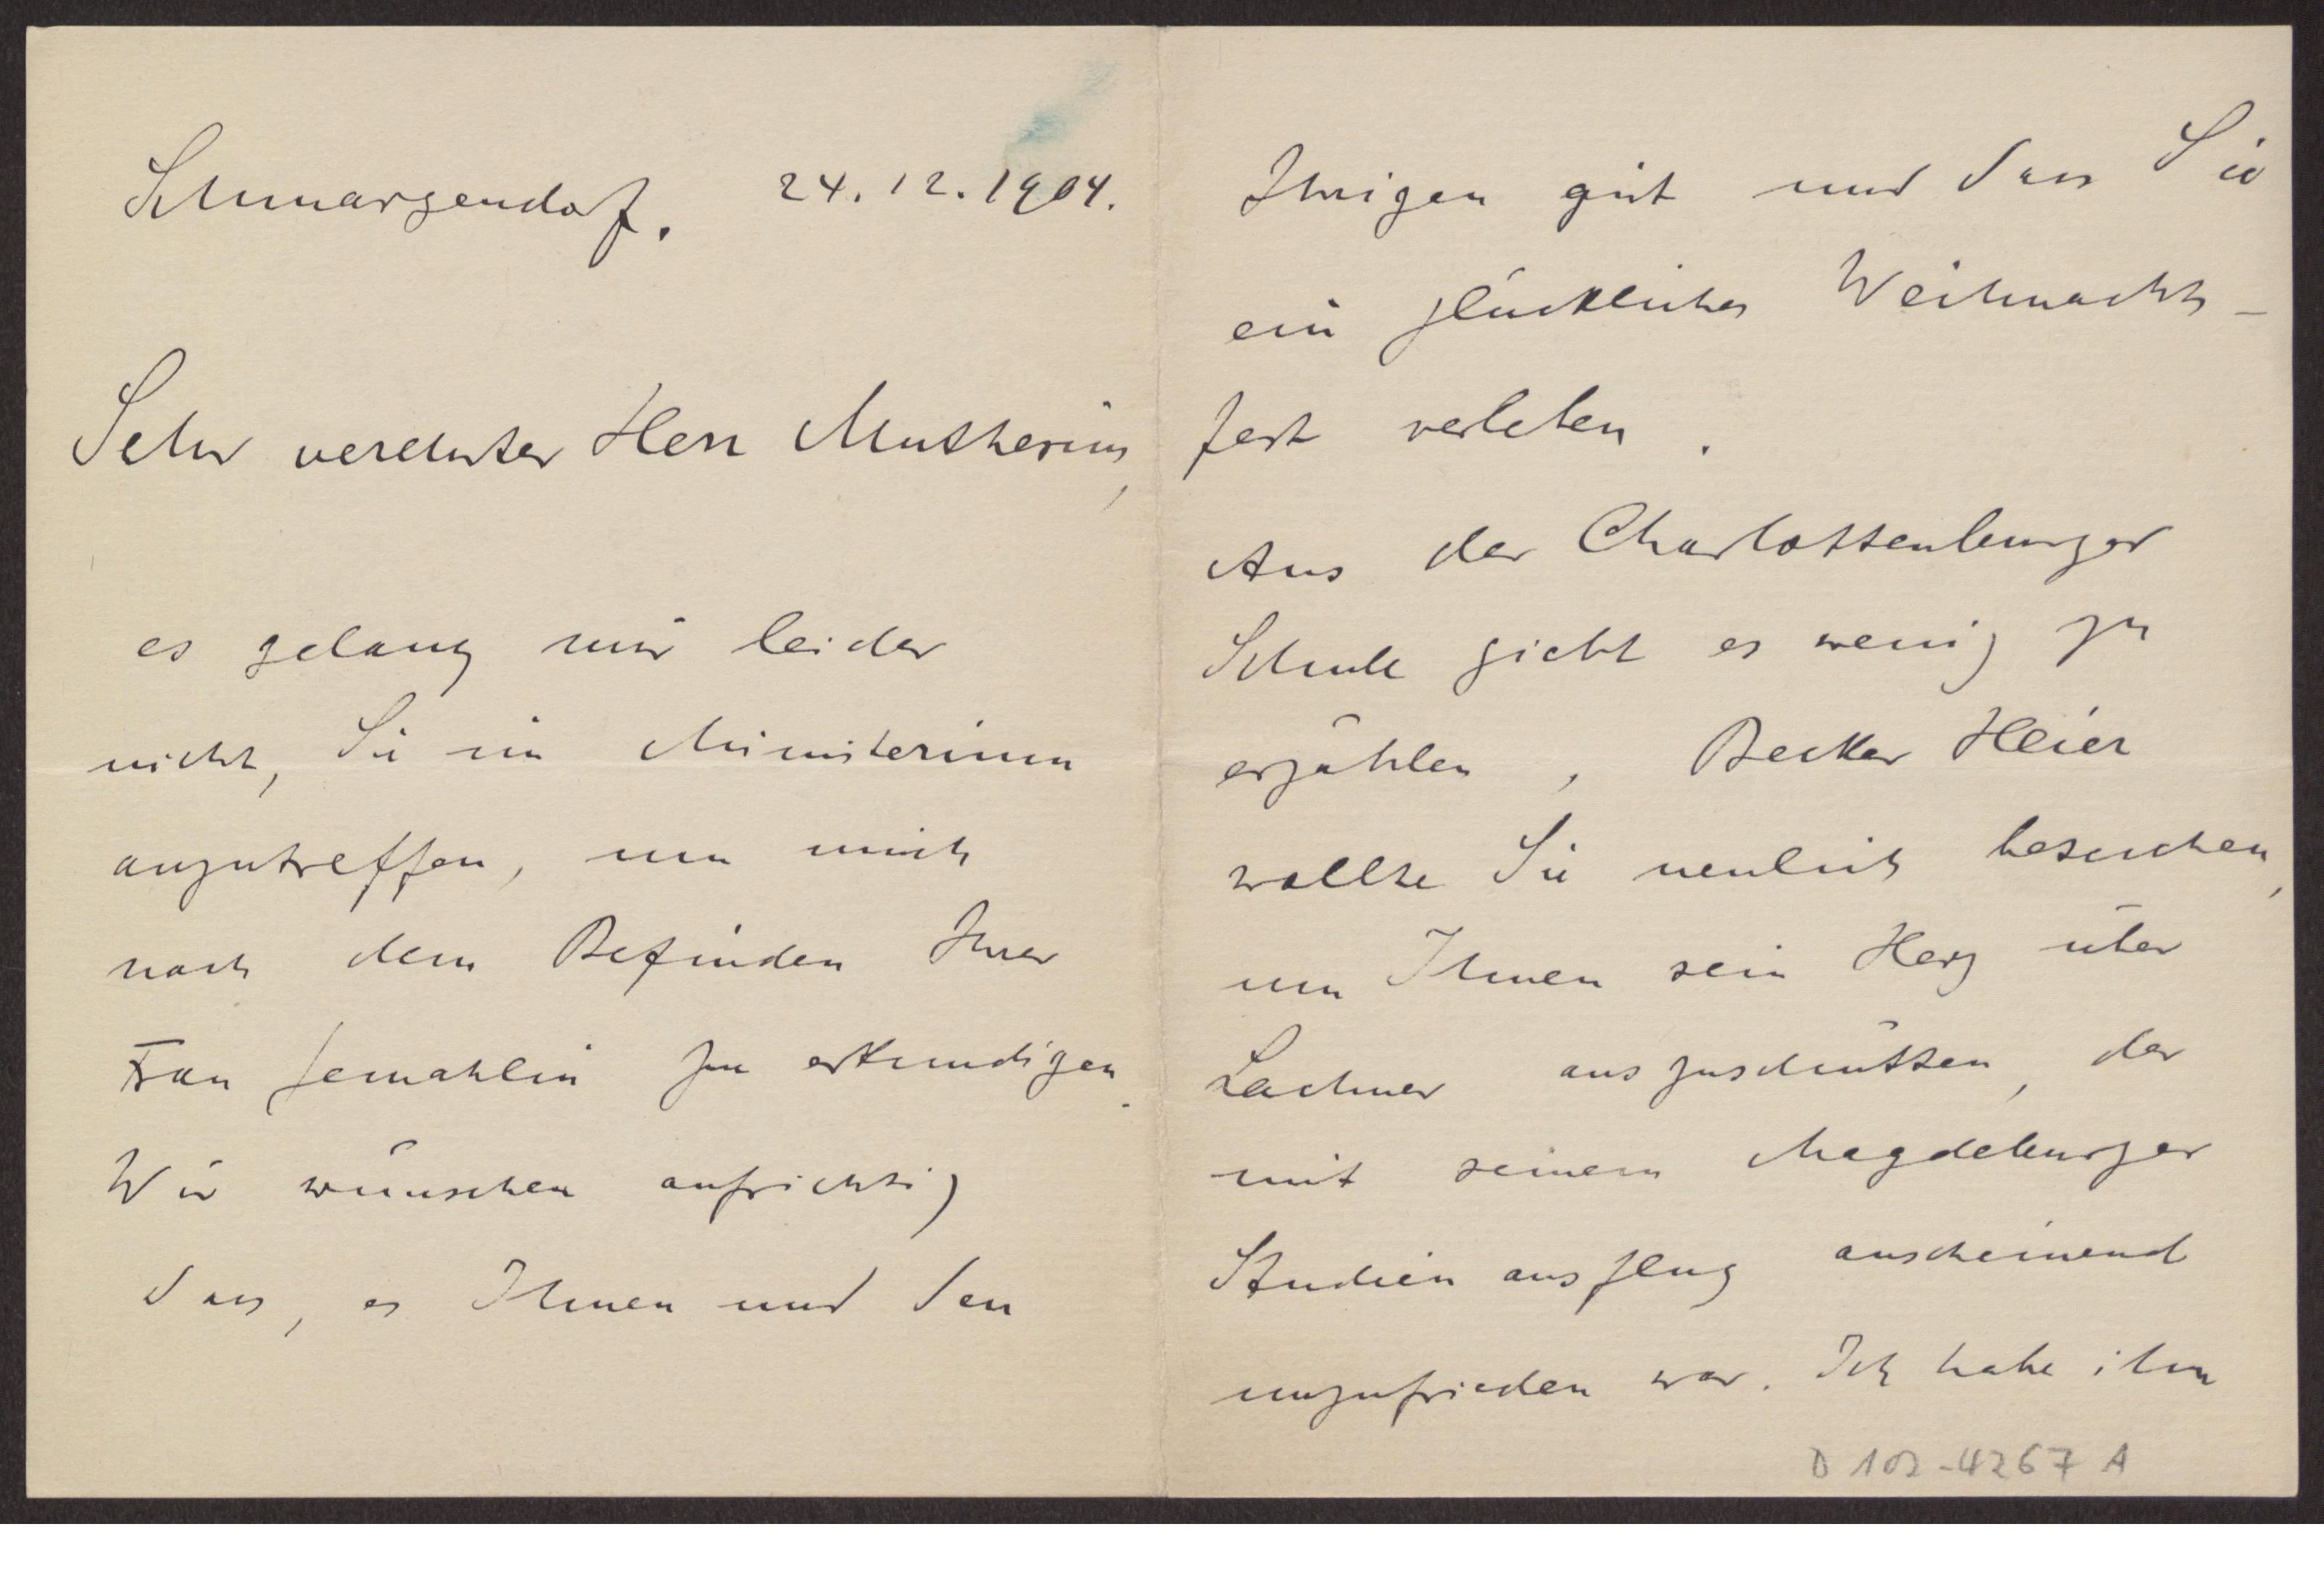 Schmargendorf. 24.12.1904.
Sehr verehrter Herr Muthesius,
es gelang mir leider
nicht, Sie im Ministerium
anzutreffen, um mich
nach dem Befinden Ihrer
Frau Gemahlin zu erkundigen.
Wir wünschen aufrichtig
dass, es Ihnen und den
Ihrigen gut und dass Sie
ein glückliches Weihnachts-
fest verleben.
Aus der Charlottenburger
Schule giebt es wenig zu
erzählen, Becker Heier
wollte Sie neulich besuchen,
um Ihnen sein Herz über
Lechner auszuschütten, der
mit seinem Magdeburger
Studienausflug anscheinend
unzufrieden war. Ich habe ihm
D 102-4267 A